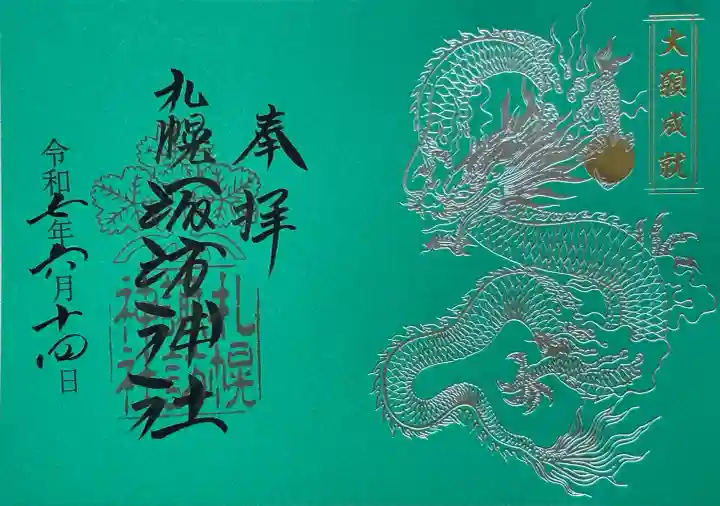 大願成就
奉拝
札幌諏訪神社
札幌
諏訪
神社
令和七年六月十四日